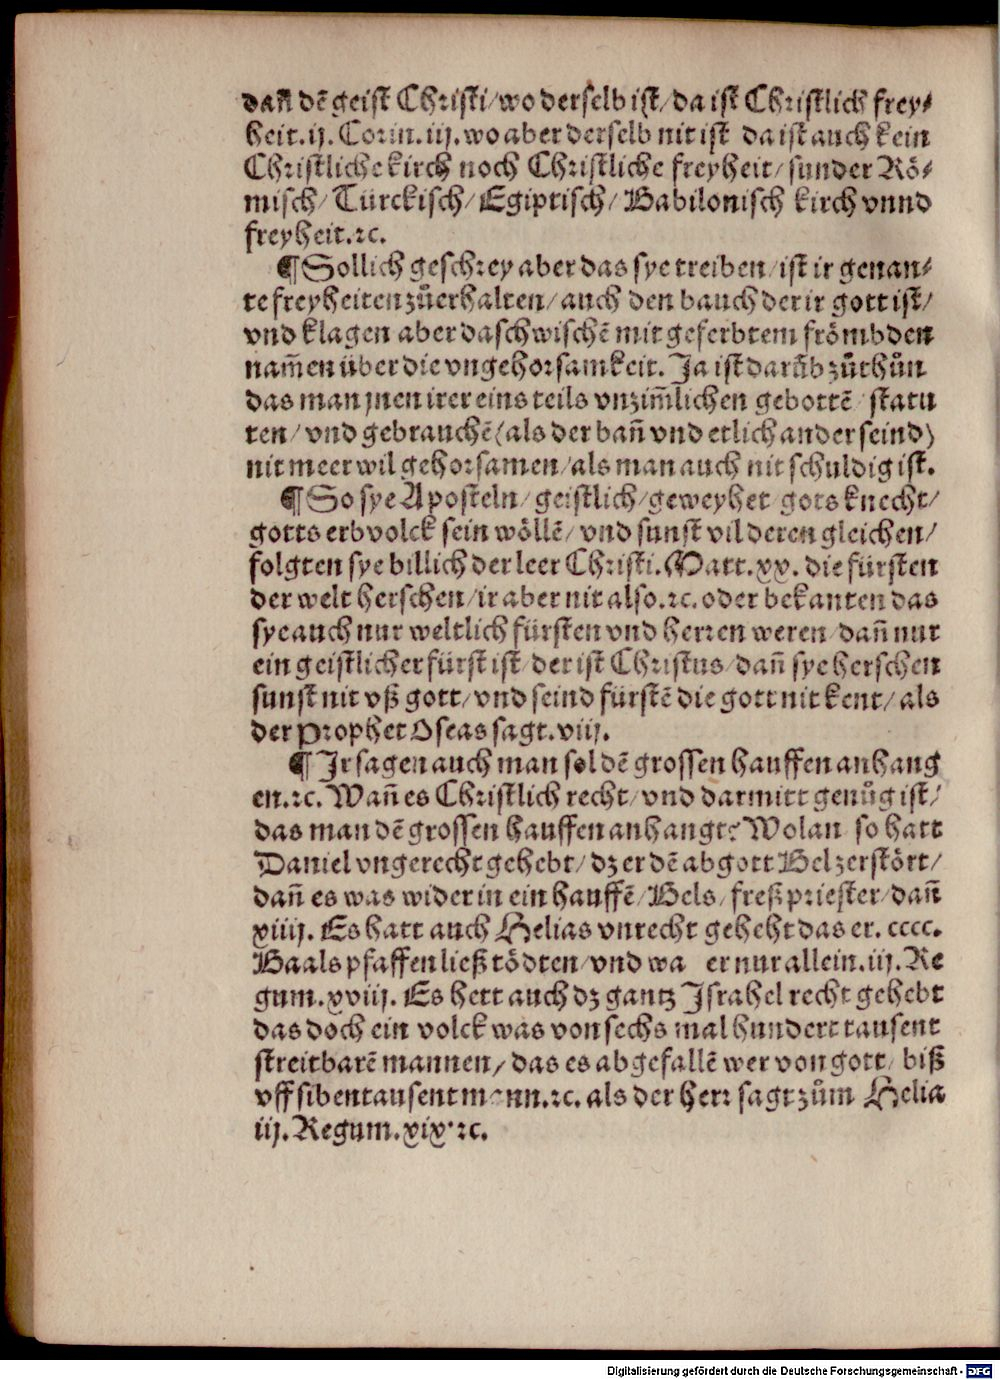 dañ dē geist Christi/ wo derselb ist/ da ist Christlich frey⸗
heit.ij. Corin.iij. wo aber derselb nit ist da ist auch kein
Christliche kirch noch Christliche freyheit/ sunder Rö⸗
misch/ Türckisch/ Egiptisch/ Babilonisch kirch vnnd
freyheit.ꝛc.
¶ Sollich geschrey aber das sye treiben/ ist ir genan⸗
te freyheiten zůerhalten/ auch den bauch der ir gott ist/
vnd klagen aber daschwischē mit geferbtem frömbden
nam̄en über die vngehorsamkeit. Ja ist darūb zůthůn
das man jnen irer eins teils vnzim̄lichen gebottē/ statu
ten/ vnd gebrauchē (als der bañ vnd etlich ander seind)
nit meer wil gehorsamen/ als man auch nit schuldig ist.
¶ So sye Aposteln/ geistlich/ geweyhet/ gots knecht/
gotts erbvolck sein wöllē/ vnd sunst vil deren gleichen/
folgten sye billich der leer Christi. Matt.xx. die fürsten
der welt herschen/ ir aber nit also.ꝛc. oder bekanten das
sye auch nur weltlich fürsten vnd herren weren/ dañ nur
ein geistlicher fürst ist/ der ist Christus/ dañ sye herschen
sunst nit vß gott/ vnd seind fürstē die gott nit kent/ als
der Prophet Oseas sagt.viij.
¶ Ir sagen auch man sol dē grossen hauffen anhang
en.ꝛc. Wañ es Christlich recht/ vnd darmitt genůg ist/
das man dē grossen hauffen anhangt? Wolan so hatt
Daniel vngerecht gehebt/ dz er dē abgott Bel zerstört/
dañ es was wider in ein hauffē/ Bels/ freß priester/ dañ
xiiij. Es hatt auch Helias vnrecht geheht das er.cccc.
Baals pfaffen ließ tödten/ vnd wa er nur allein.iij. Re
gum.xviij. Es hett auch dz gantz Israhel recht gehebt
das doch ein volck was von sechs mal hundert tausent
streitbarē mannen/ das es abgefallē wer von gott/ biß
vff sibentausent mann.ꝛc. als der herr sagt zům Helia
iij. Regum.xix.ꝛc.
Digitalisierung gefördert durch die Deutsche Forschungsgemeinschaft - DFG